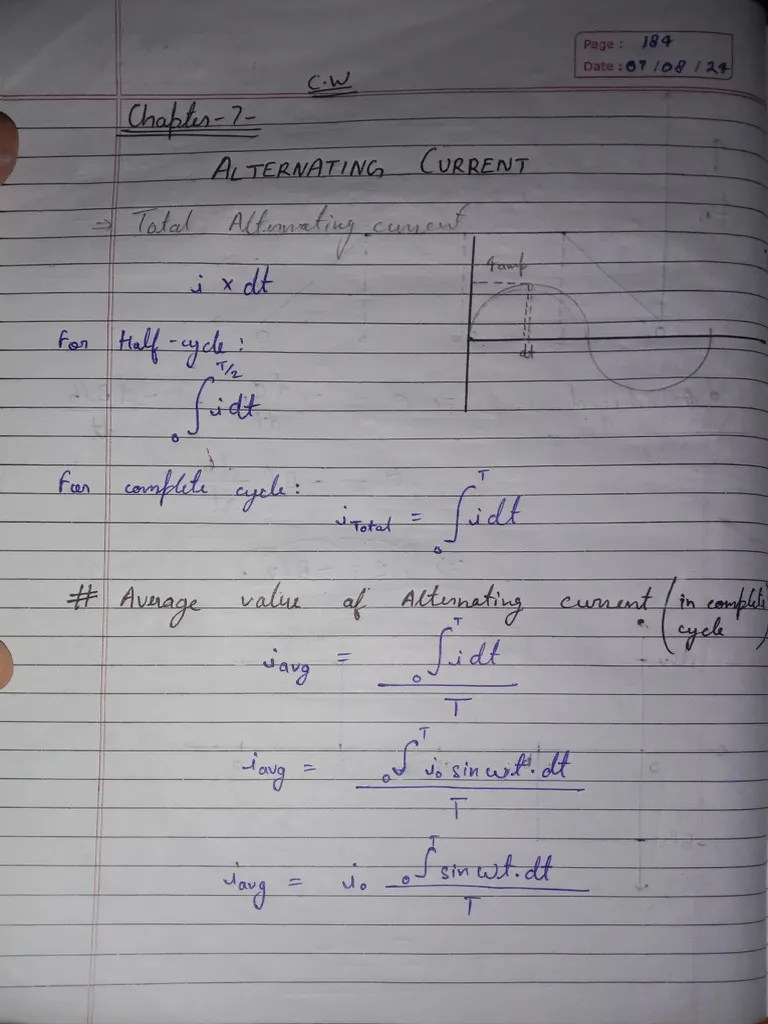 Page: 184
Date: 07/08/24
C.W
Chapter-7-
ALTERNATING CURRENT
⇒ Total Alternating current
4amp
i × dt
dt
For Half-cycle:
∫₀^{T/2} i dt
For complete cycle:
i_Total = ∫₀^T i dt
# Average value of Alternating current (in complete cycle)
i_avg = ∫₀^T i dt / T
i_avg = ∫₀^T i₀ sin ωt · dt / T
i_avg = i₀ ∫₀^T sin ωt · dt / T